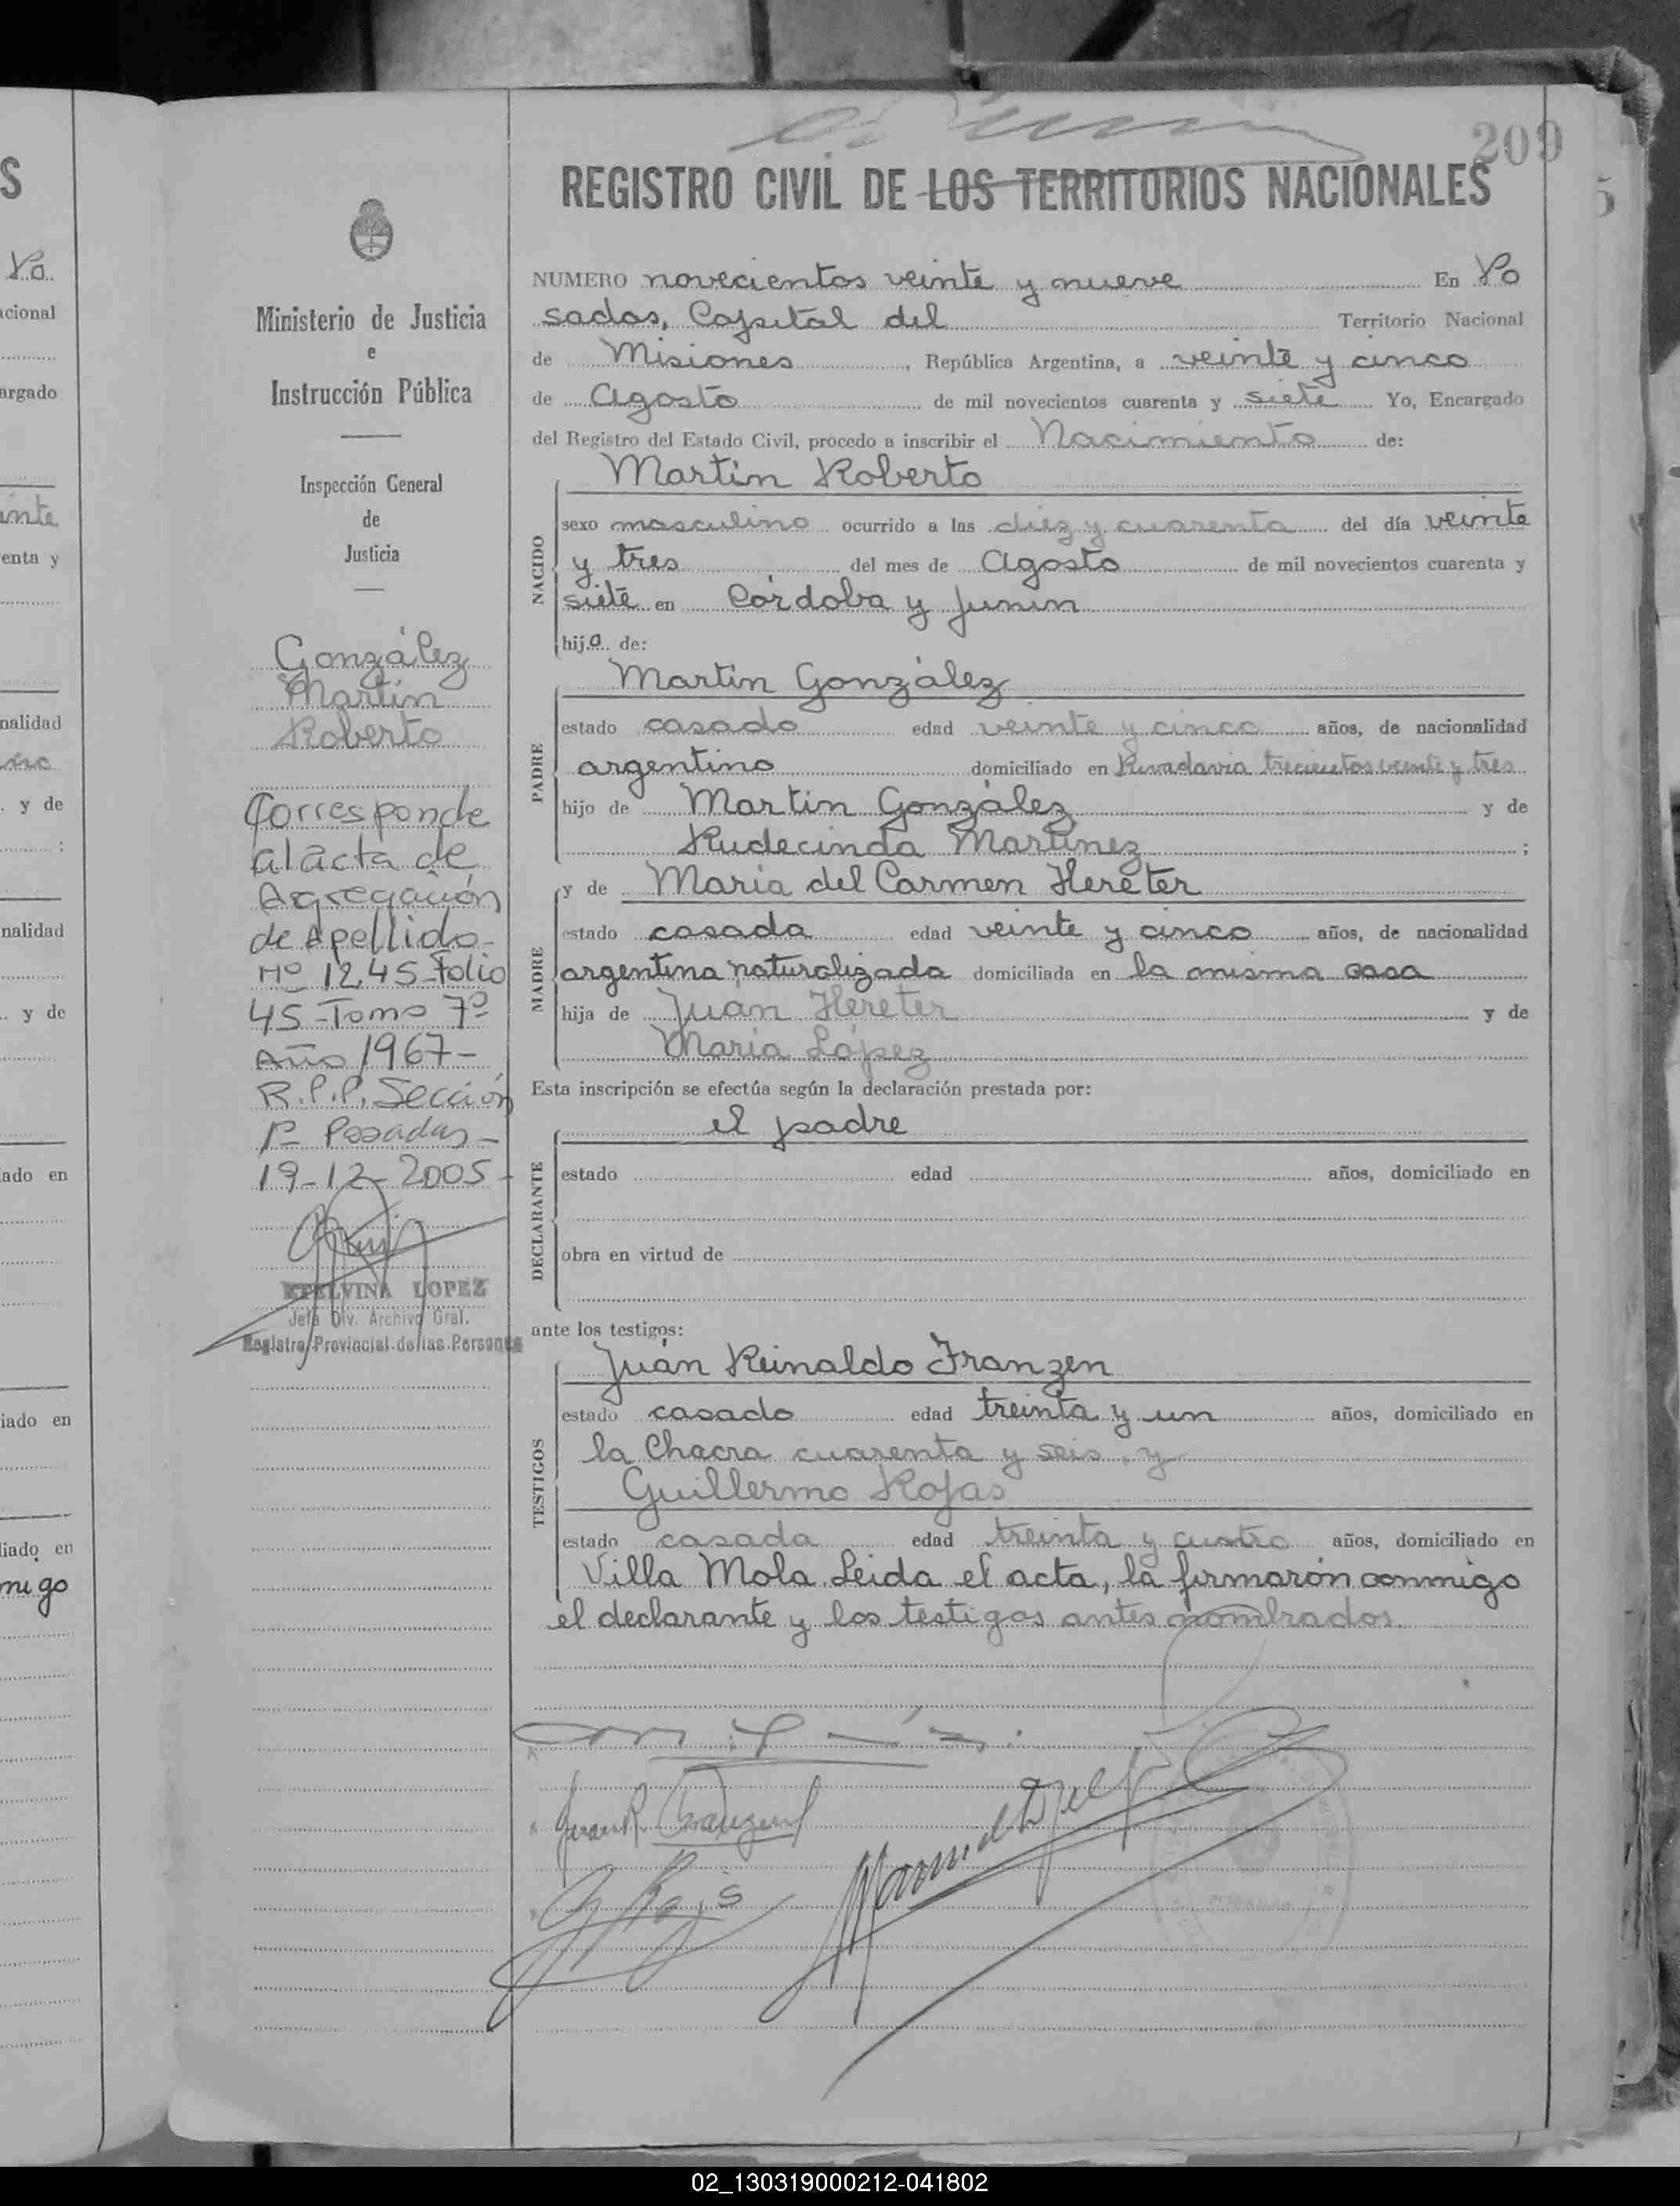 209
REGISTRO CIVIL DE LOS TERRITORIOS NACIONALES
NUMERO novecientos veinte y nueve En Po
sadas, Capital del Territorio Nacional
de Misiones, República Argentina, a veinte y cinco
de Agosto de mil novecientos cuarenta y siete Yo, Encargado
del Registro del Estado Civil, procedo a inscribir el Nacimiento de:
Martín Roberto
NACIDO
sexo masculino ocurrido a las diez y cuarenta del día veinte
y tres del mes de Agosto de mil novecientos cuarenta y
siete en Córdoba y Junin
hijo de:
Martín González
PADRE
estado casado edad veinte y cinco años, de nacionalidad
argentino domiciliado en Rivadavia trecientos veinte y tres
hijo de Martín González y de
Rudecinda Martínez ;
MADRE
y de María del Carmen Hereter
estado casada edad veinte y cinco años, de nacionalidad
argentina naturalizada domiciliada en la misma casa
hija de Juan Hereter y de
María López
Esta inscripción se efectúa según la declaración prestada por:
el padre
DECLARANTE
estado edad años, domiciliado en
obra en virtud de
ante los testigos:
TESTIGOS
Juán Reinaldo Franzen
estado casado edad treinta y un años, domiciliado en
la Chacra cuarenta y seis, y
Guillermo Rojas
estado casada edad treinta y cuatro años, domiciliado en
Villa Mola. Leida el acta, la firmarón conmigo
el declarante y los testigos antes nombrados.
Ministerio de Justicia
e
Instrucción Pública
Inspección General
de
Justicia
González
Martín
Roberto
Corresponde
al acta de
Agregación
de Apellido
Nº 1245 Folio
45-Tomo 7º
Año 1967-
R.P.P. Sección
1ª Posadas-
19-12-2005-
ETELVINA LOPEZ
Jefa Div. Archivo Gral.
Registro Provincial de las Personas
S
Po
acional
argado
inte
enta y
nalidad
y de
:
nalidad
y de
ado en
iado en
liado en
migo
02_130319000212-041802